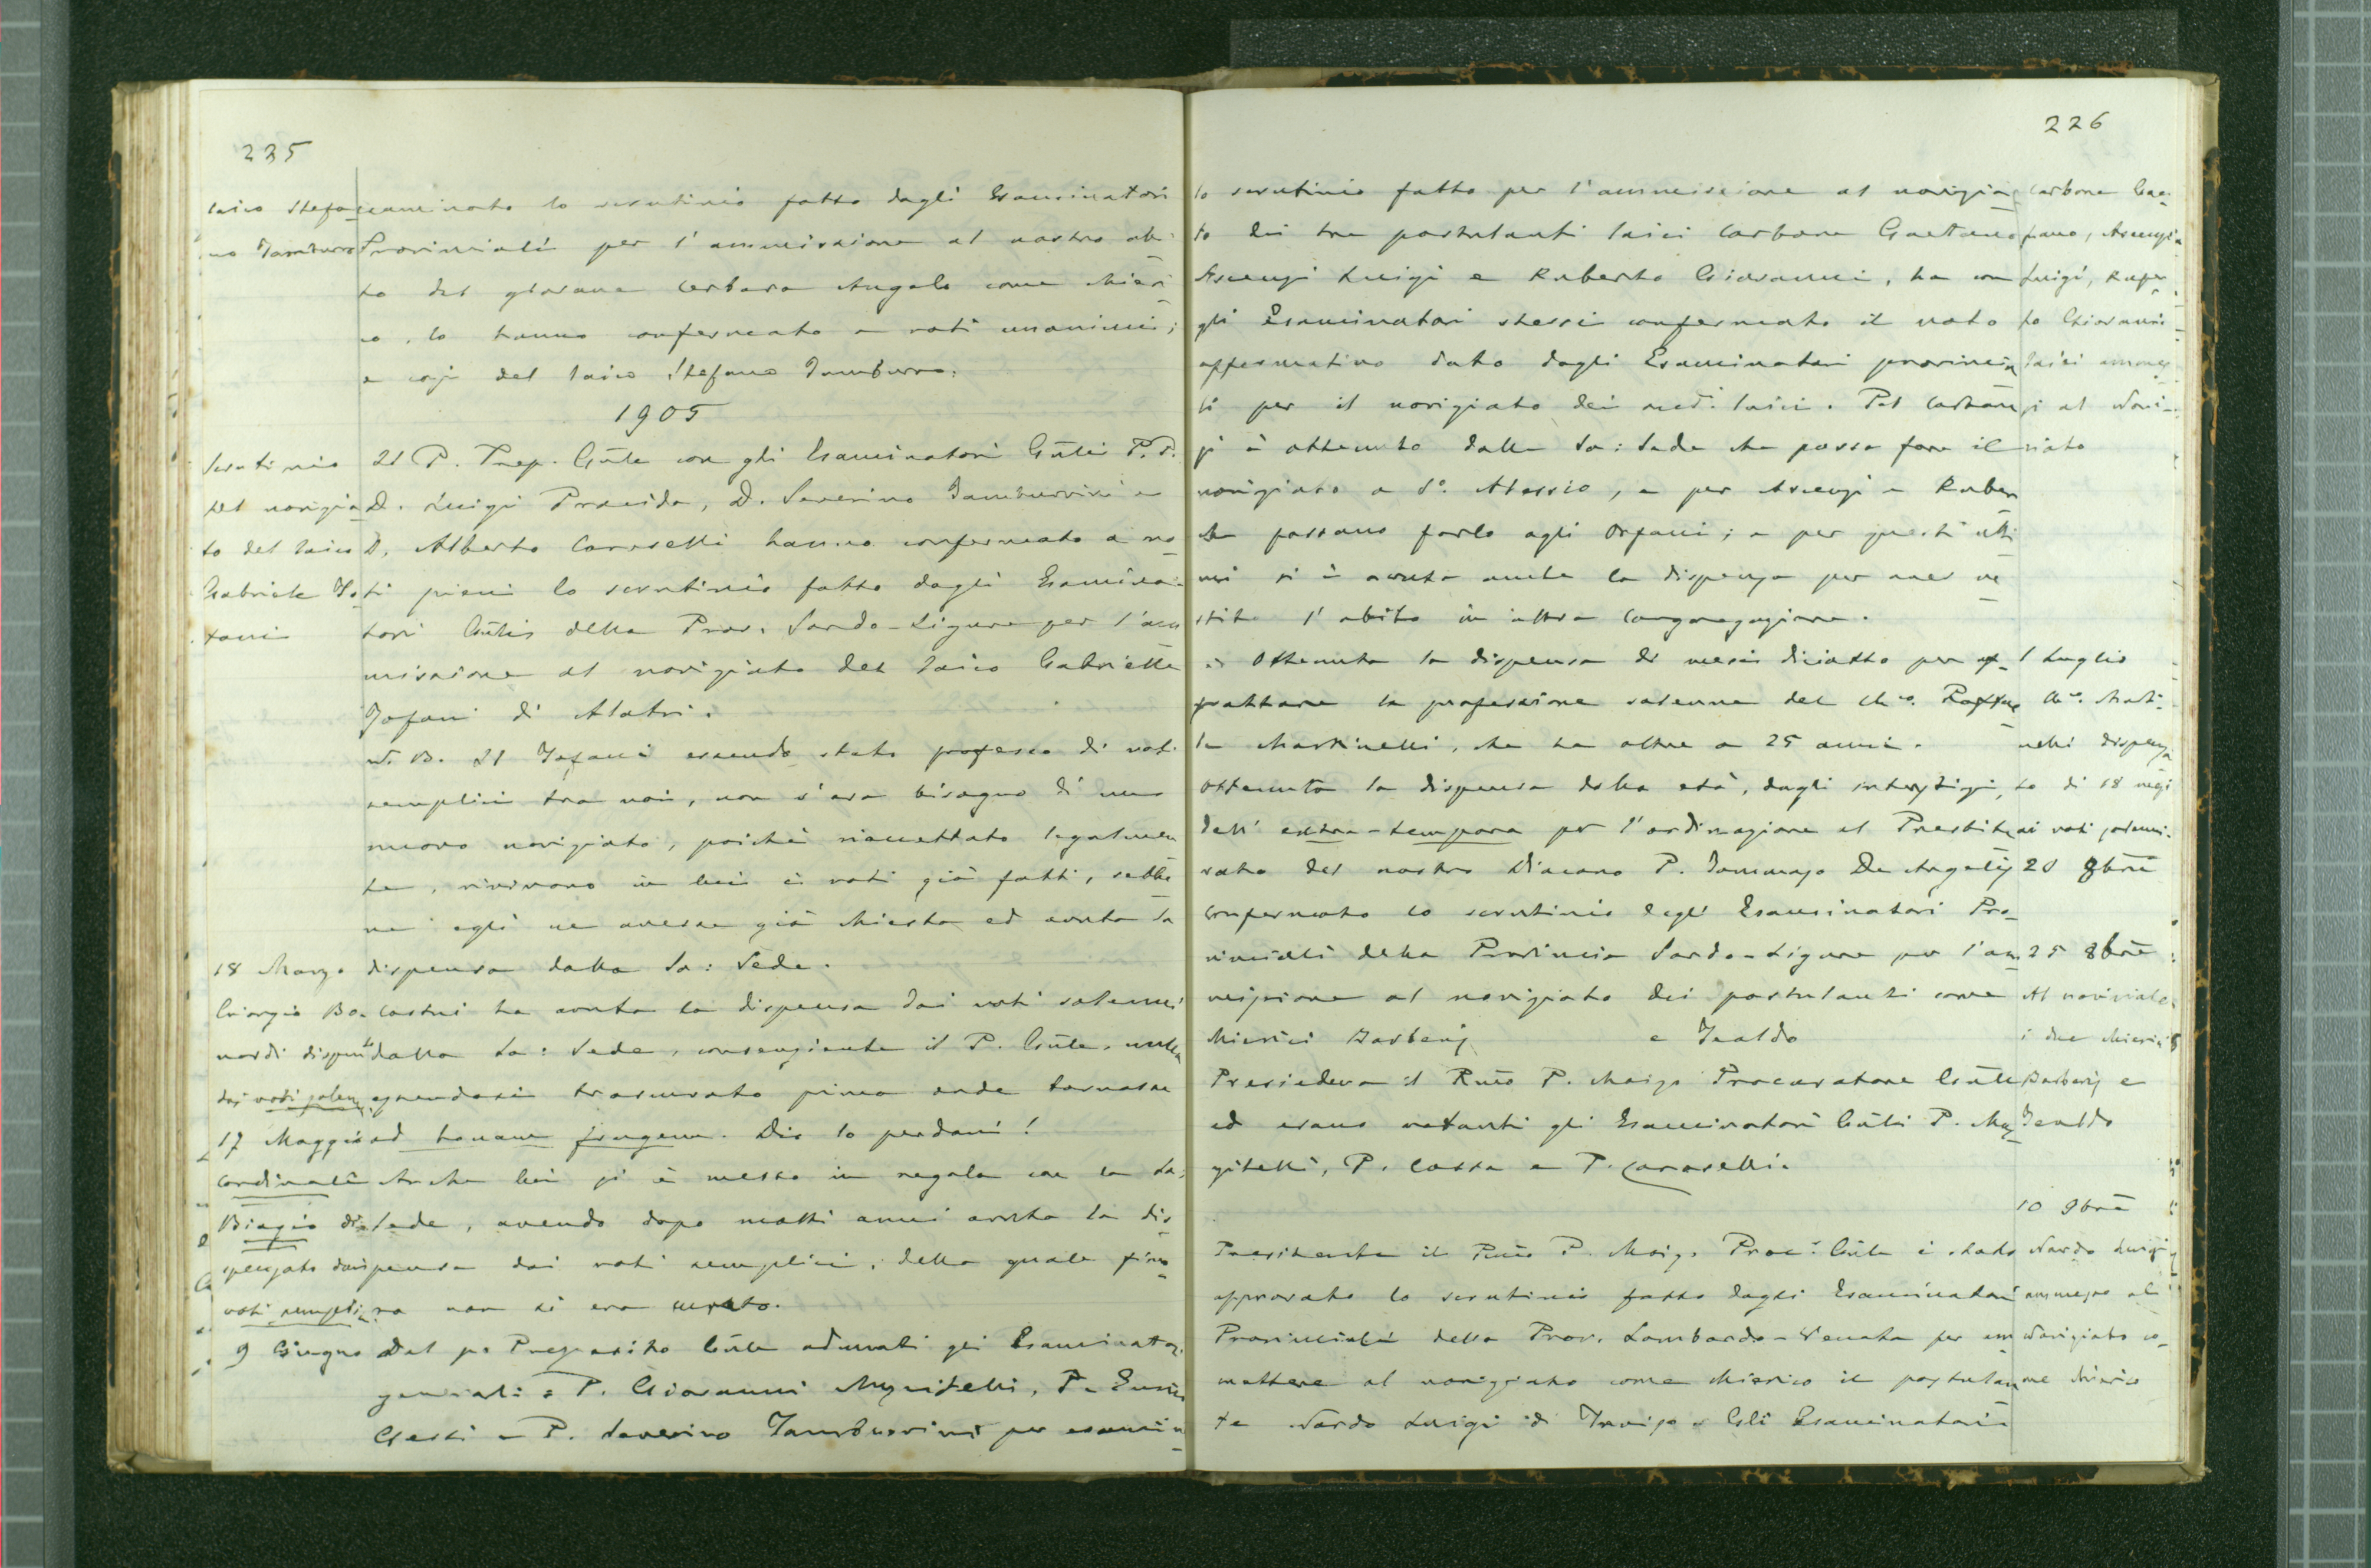 225
laico Stefa
no Tamburro
esaminato lo scrutinio fatto dagli Esaminatori
Provinciali per l'ammissione al nostro abi
to del giovane Cerbara Angelo come chieri
co, lo hanno confermato a voti unanimi;
e così del laico Stefano Tamburro.
1905
Scrutinio
del novizia
to del laico
Gabriele To
fani
Il P. Prep. Gñle con gli Esaminatori Gñli P.P.
D. Luigi Procida, D. Severino Tamburrini e
D. Alberto Caroselli hanno confermato a vo
ti pieni lo scrutinio fatto dagli Esamina
tori della Prov. Sardo-Ligure per l'am
missione al noviziato del laico Gabriele
Tofani di Alatri.
N. B. Il Tofani essendo stato professo di voti
semplici tra noi, non v'era bisogno di un
nuovo noviziato, poichè riaccettato legalmen
te, rivivono in lui i voti già fatti, sebbe
ne egli ne avesse già chiesta ed avuta la
dispensa dalla Sa: Sede.
18 Marzo
Giorgio Bo
nardi dispensto
dai voti solen
Costui ha avuta la dispensa dai voti solenni
dalla Sa: Sede, consenziente il P. Gñle,
essendosi trascurato prima onde tornasse
ad bonam frugem. Dio lo perdoni!
17 Maggio
Cardinali
Biagio di
spensato dai
voti semplici
Anche lui si è messo in regola con la Sa:
Sede, avendo dopo molti anni avuta la di
spensa dai voti semplici, della quale fino
ra non si era curato.
9 Giugno
Dal po Preposito Gñle adunati gli Esaminatori
generali: P. Giovanni Muzzitelli, P.
Gessi e P. Severino Tamburrini per esamin
226
lo scrutinio fatto per l'ammissione al novizia
to dei tre postulanti laici Carbone Gaetano
Ascenzi Luigi e Ruberto Giovanni, ha con
gli Esaminatori stessi confermato il voto
affermativo dato dagli Esaminatori provincia
li per il noviziato dei med. laici. Pel Carbone
si è ottenuto dalla Sa: Sede che possa fare il
noviziato a S. Alessio, e per Ascenzi e Ruber
che possano farlo agli Orfani; e per questi ulti
mi si è avuta anche la dispensa per aver ve
stito l'abito in altra Congregazione.
Carbone Gae
tano, Ascenzi
Luigi, Ruber
to Giovanni
laici ammes
si al Novi
ziato
È Ottenuta la dispensa di mesi diciotto per ef
fettuare la professione solenne del Ch.co
Martinelli, che ha oltre a 25 anni.
1 Luglio
Ch.co Marti
nelli dispensa
to di 18 mesi
ai voti solenni.
Ottenuta la dispensa della età, dagli interstizi,
dell'extra-tempora per l'ordinazione al Presbite
rato del nostro Diacono P. Tommaso De Angelis
20 8bre
Confermato lo scrutinio degli Esaminatori Pro
vinciali della Provincia Sardo-Ligure per l'am
missione al noviziato dei postulanti come
chierici Barberis e Tealdo
Presiedeva il Rmo P. Moizo Procuratore Gñle
ed erano votanti gli Esaminatori Gñli P. Muz
zitelli, P. Cossa e P. Caroselli.
25 8bre
Al noviziato
i due chierici
Barberis e
Tealdo
10 9bre
Presidente il Rmo P. Moizo Proc. Gñle è stato
approvato lo scrutinio fatto dagli Esaminatori
Provinciali della Prov. Lombardo-Veneta per am
mettere al noviziato come chierico il postulan
te Nardo Luigi di Treviso. Gli Esaminatori
Nardo Luigi
ammesso al
Noviziato co
me chierico